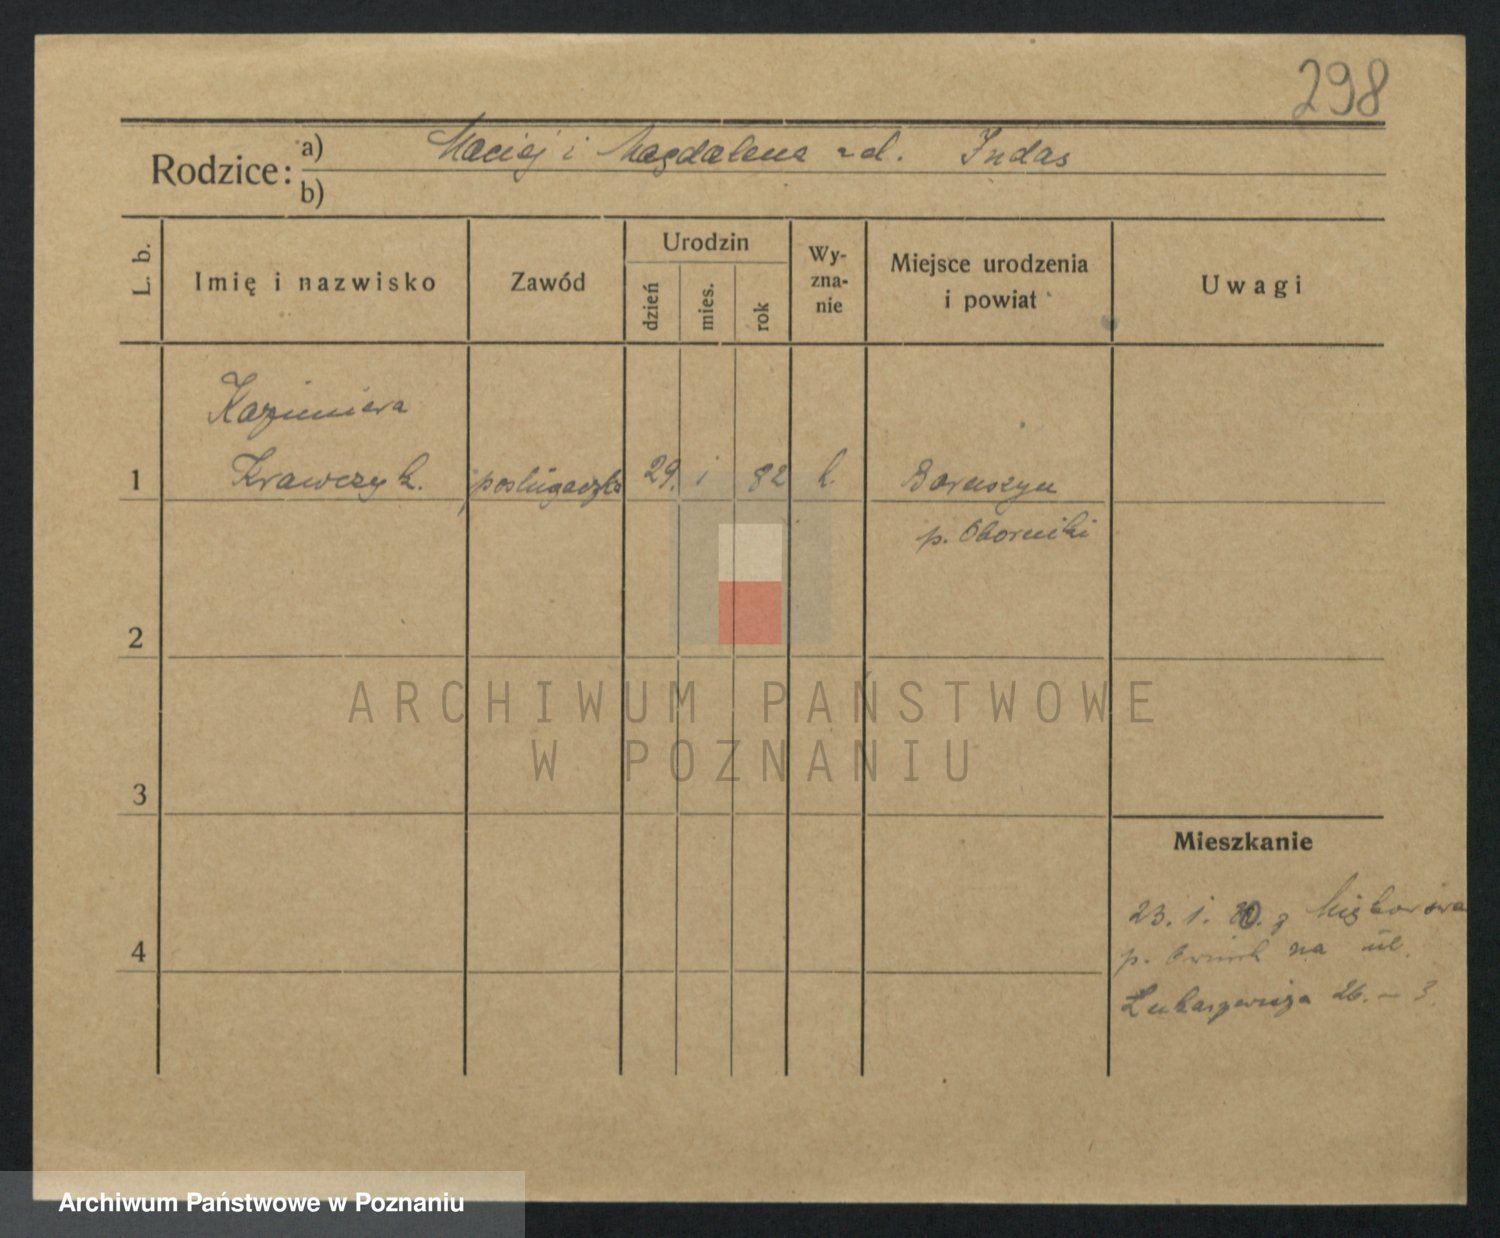 298
Rodzice: a) Maciej i Magdalena zd. Judas
b)
L. b.
Imię i nazwisko
Zawód
Urodzin
dzień
mies.
rok
Wy-
zna-
nie
Miejsce urodzenia
i powiat
Uwagi
Kazimiera
1 Krawczyk. posługaczka 29. i 82 k. Boruszyn
p. Oborniki
2
3
4
Mieszkanie
23. i. z
p. na ul.
Łukaszewicza 26. – 3.
ARCHIWUM PAŃSTWOWE
W POZNANIU
Archiwum Państwowe w Poznaniu